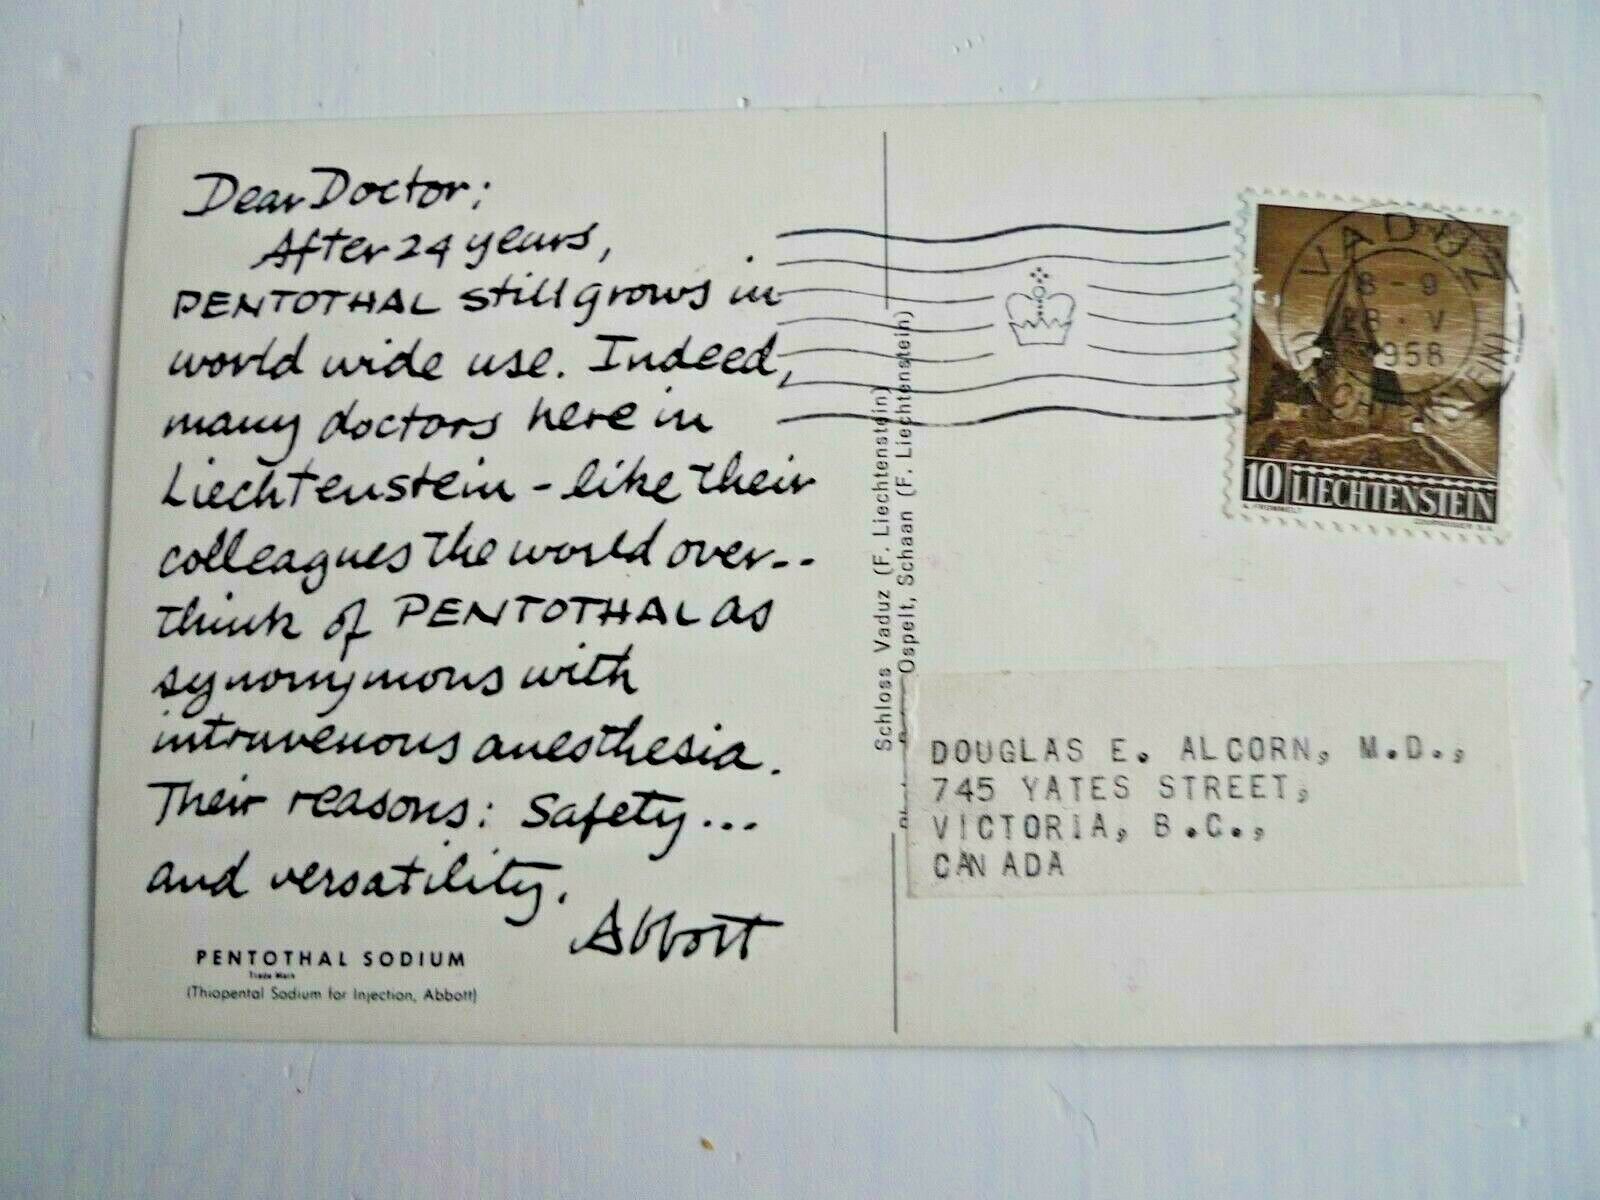 Dear Doctor;
After 24 years,
PENTOTHAL still grows in
world wide use. Indeed,
many doctors here in
Liechtenstein - like their
colleagues the world over--
think of PENTOTHAL as
synonymous with
intravenous anesthesia.
Their reasons: Safety...
and versatility.
Abbott
PENTOTHAL SODIUM
Trade Mark
(Thiopental Sodium for Injection, Abbott)
Schloss Vaduz (F. Liechtenstein)
Ospelt, Schaan (F. Liechtenstein)
VADUZ
8-9
28.V
1958
10 LIECHTENSTEIN
A. FROMMELT
COURVOISIER S.A.
DOUGLAS E. ALCORN, M.D.,
745 YATES STREET,
VICTORIA, B.C.,
CANADA